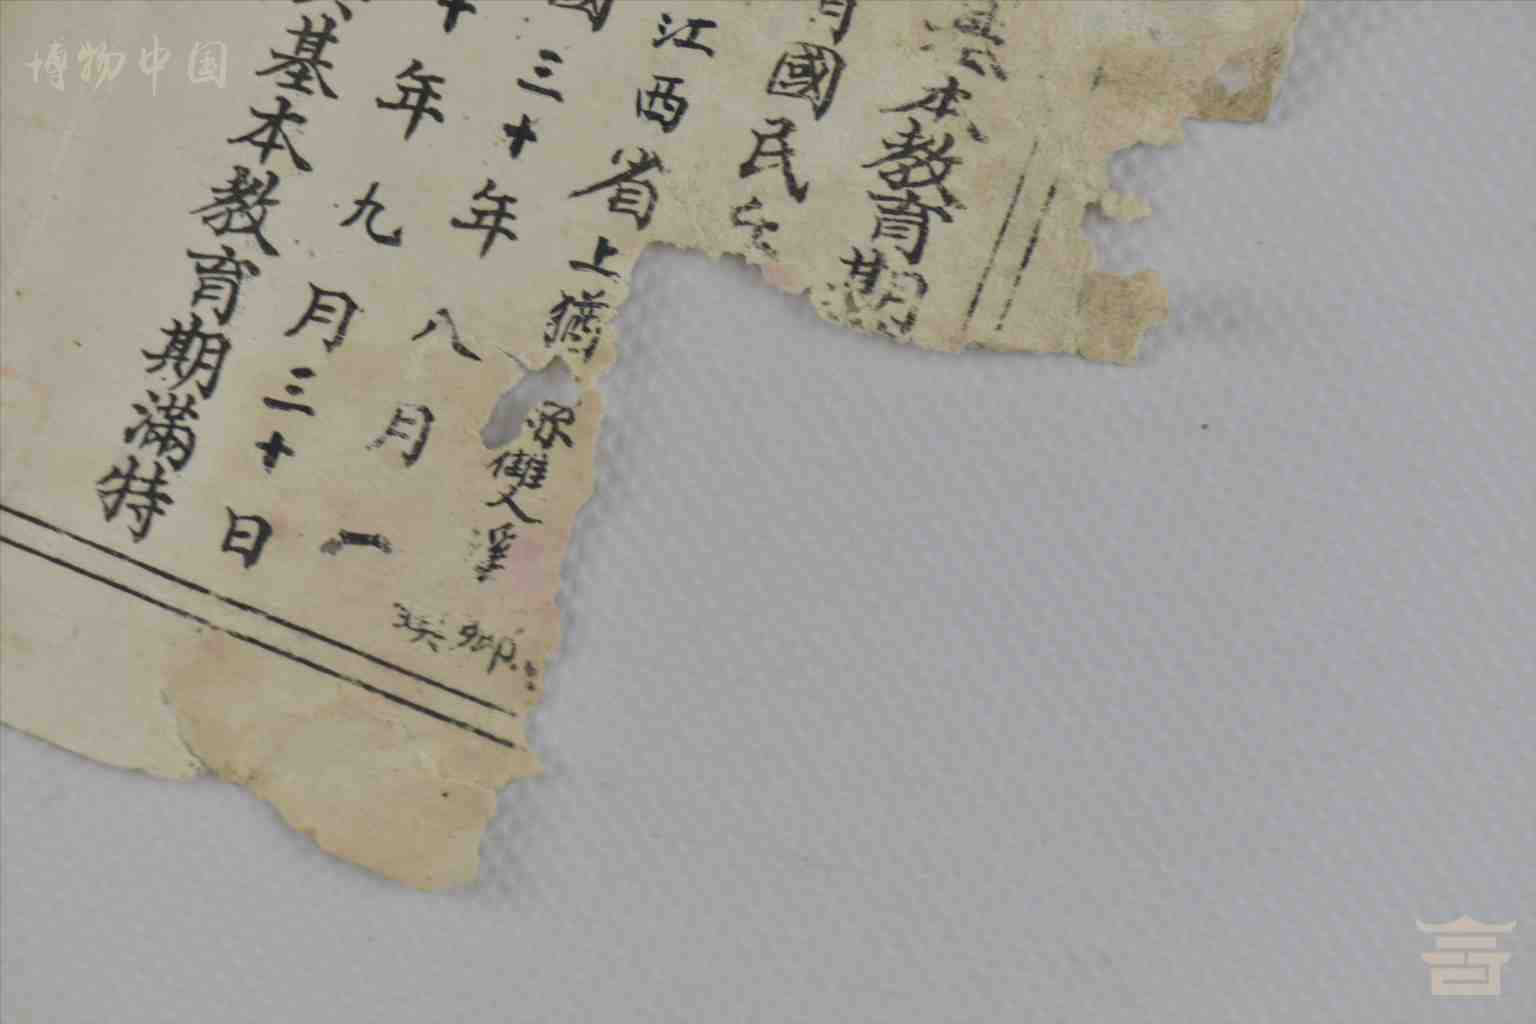 博物中国
本教育期
國民
江西省上猶
雙溪
三十年八月一
年九月三十日
基本教育期滿特